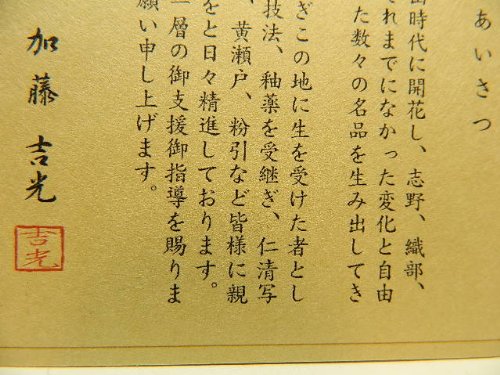 あいさつ
山時代に開花し、志野、織部、
それまでになかった変化と自由
た数々の名品を生み出してき
ぎこの地に生を受けた者とし
技法、釉薬を受継ぎ、仁清写
、黄瀬戸、粉引など皆様に親
をと日々精進しております。
一層の御支援御指導を賜りま
願い申し上げます。
加藤吉光
吉光